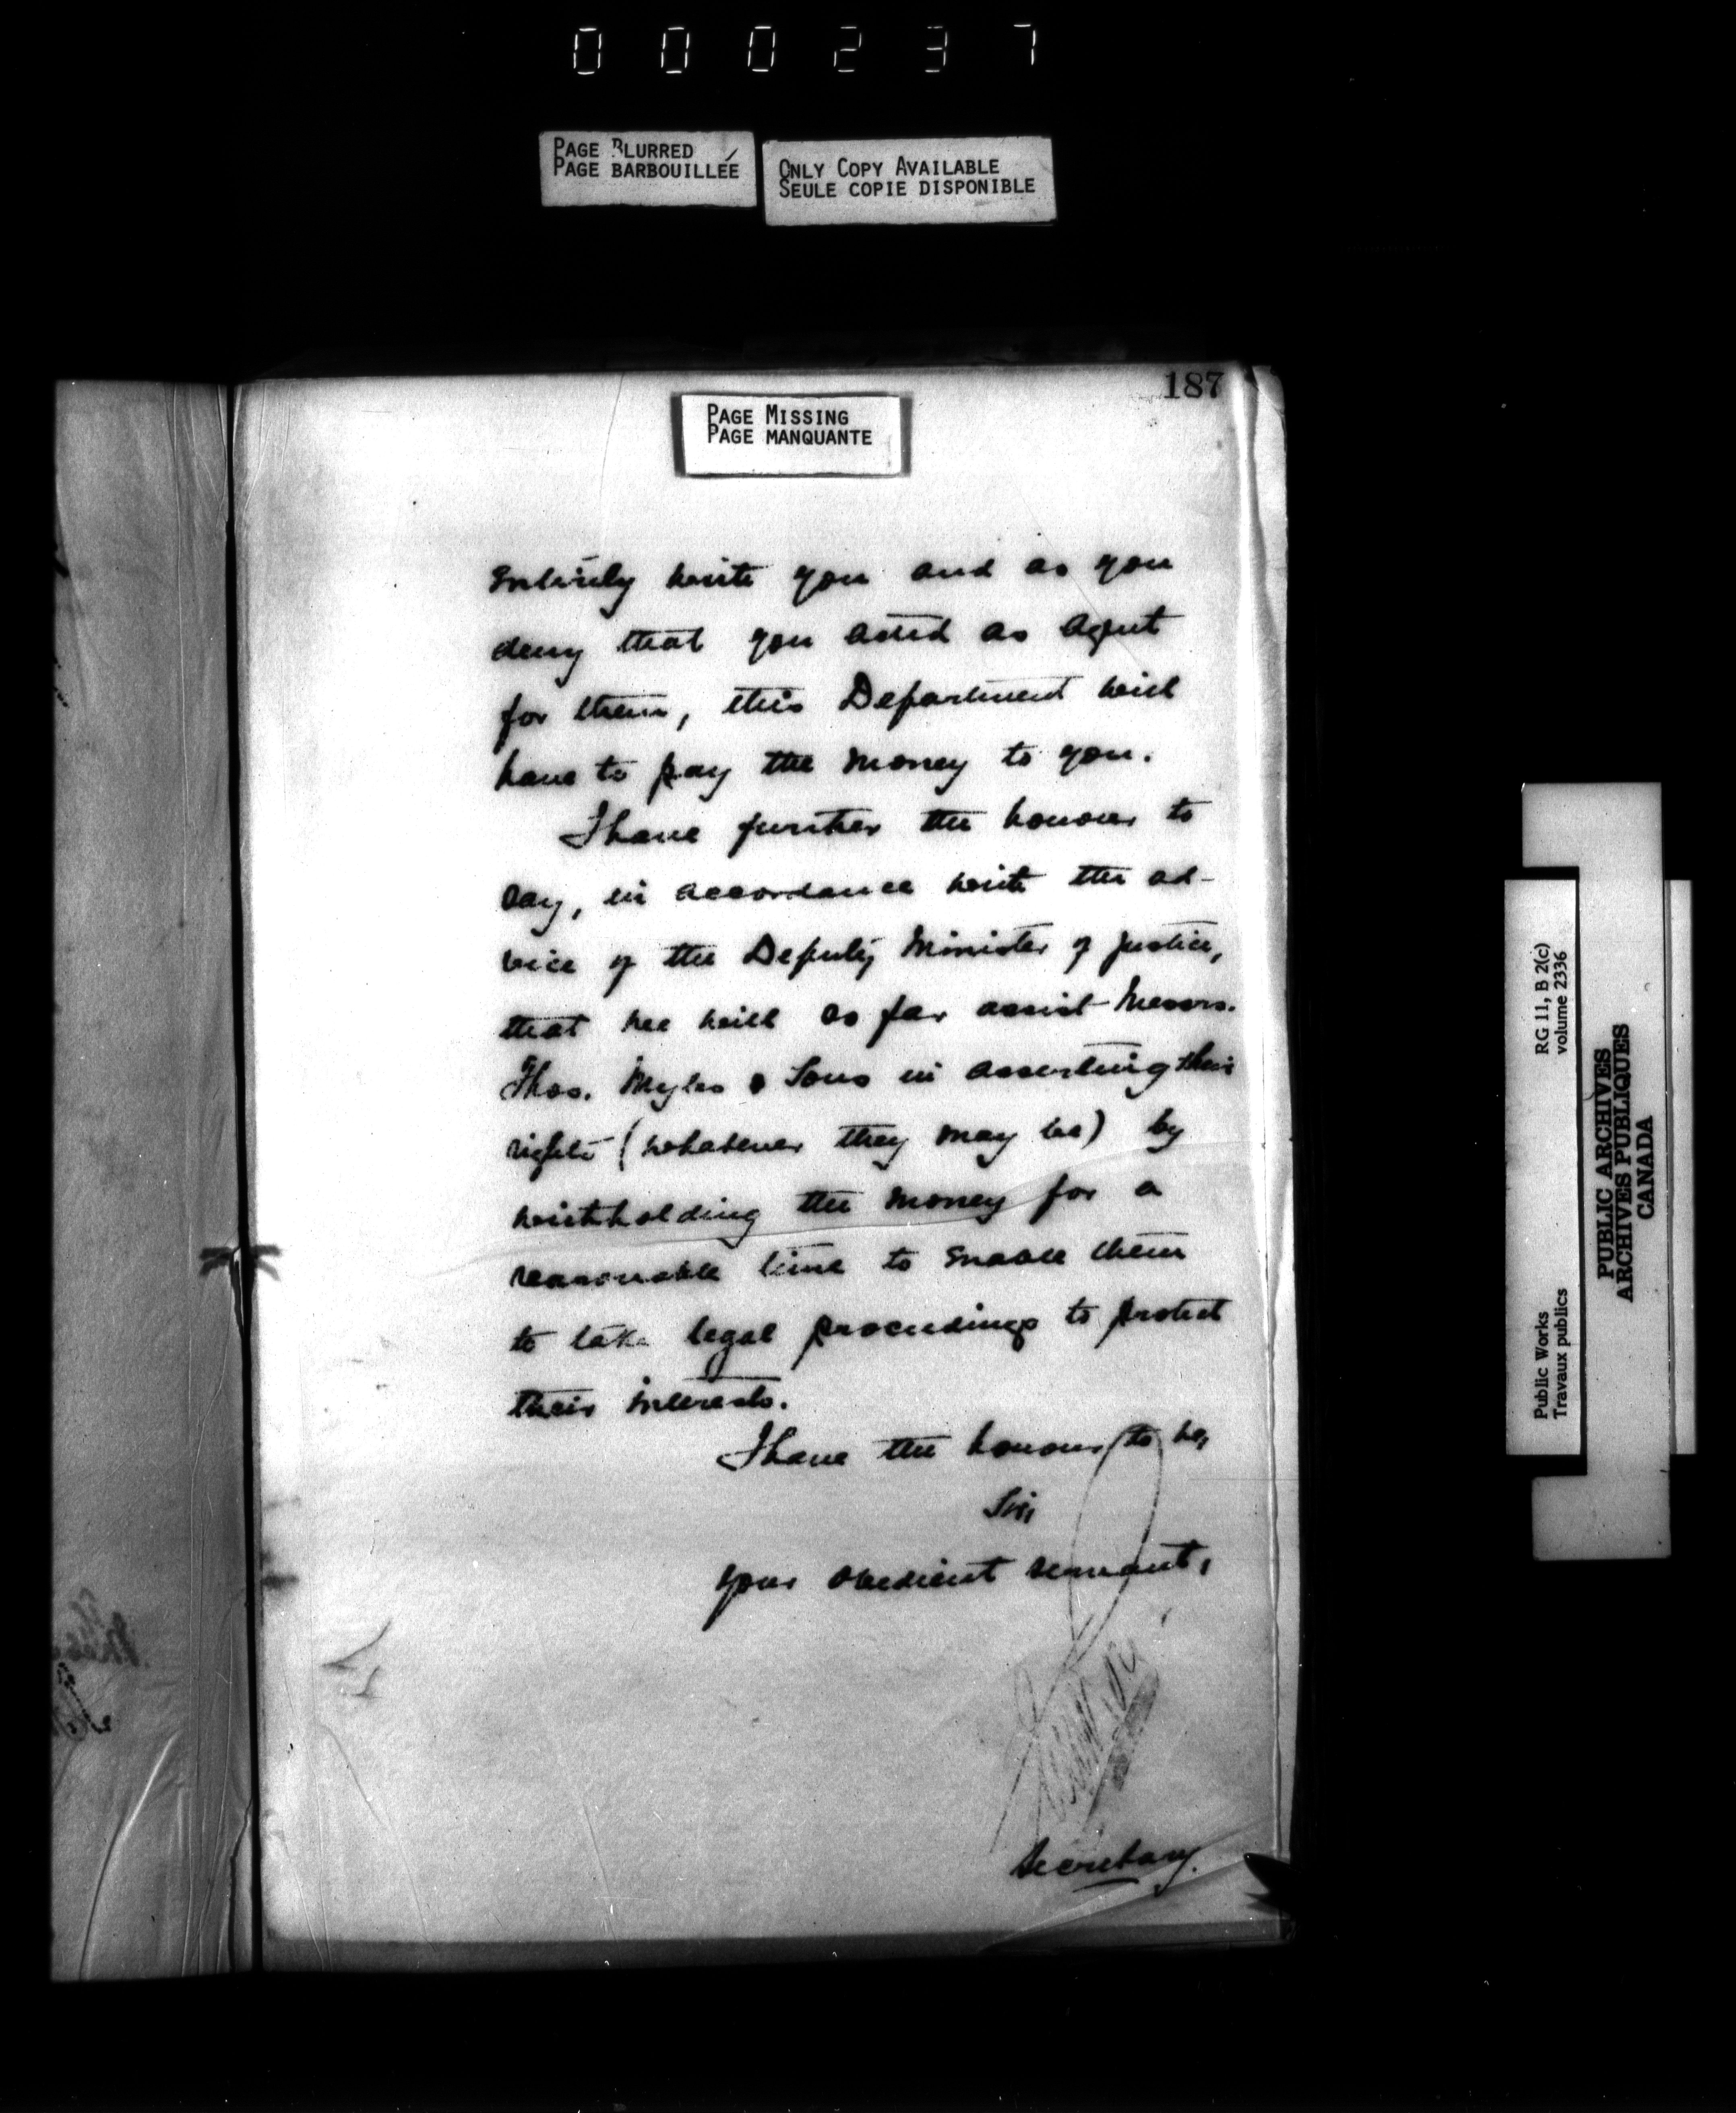 000237
PAGE BLURRED
PAGE BARBOUILLÉE
ONLY COPY AVAILABLE
SEULE COPIE DISPONIBLE
187
PAGE MISSING
PAGE MANQUANTE
entirely with you and as you
deny that you acted as agent
for them, this Department will
have to pay the money to you.
I have further the honour to
say, in accordance with the ad-
vice of the Deputy Minister of Justice,
that we will so far assist Messrs.
Thos. Myles & Sons in asserting their
rights (whatever they may be) by
withholding the money for a
reasonable time to enable them
to take legal proceedings to protect
their interests.
I have the honour to be,
Sir,
Your obedient servant,
Secretary.
Public Works
Travaux publics
RG 11, B 2(c)
volume 2336
PUBLIC ARCHIVES
ARCHIVES PUBLIQUES
CANADA